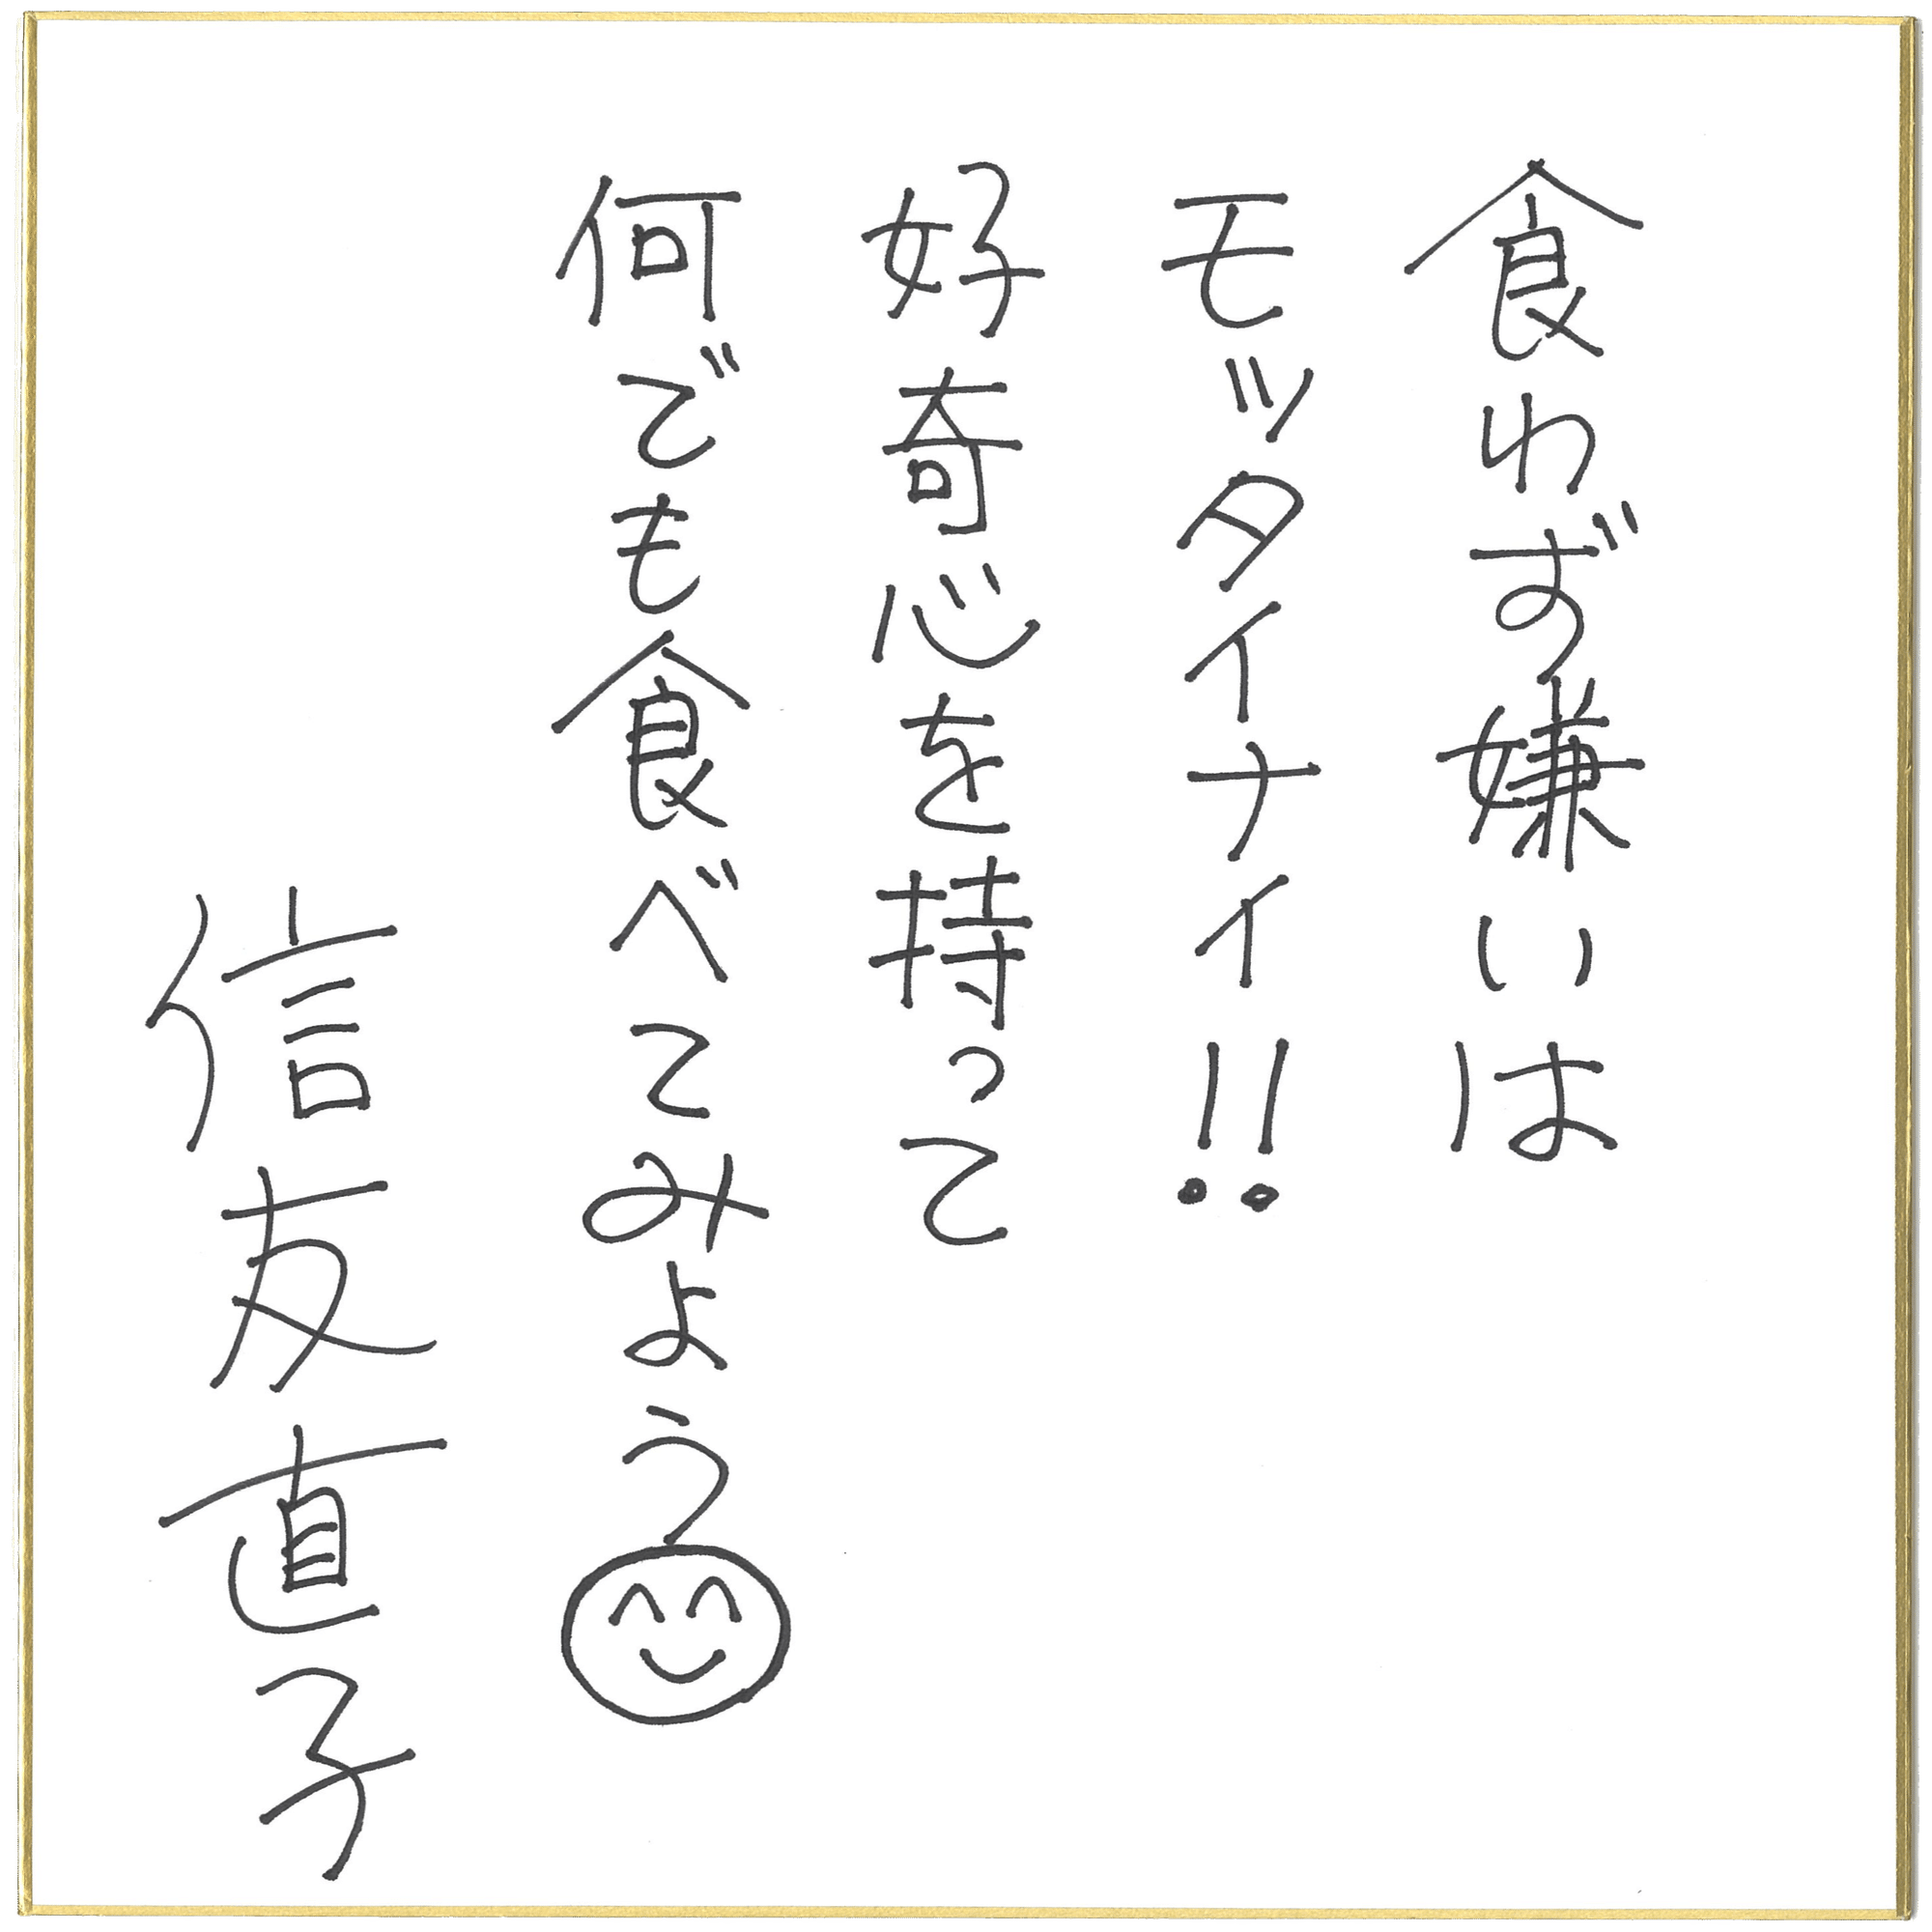 食わず嫌いは
モッタイナイ!!
好奇心を持って
何でも食べてみよう
信友直子